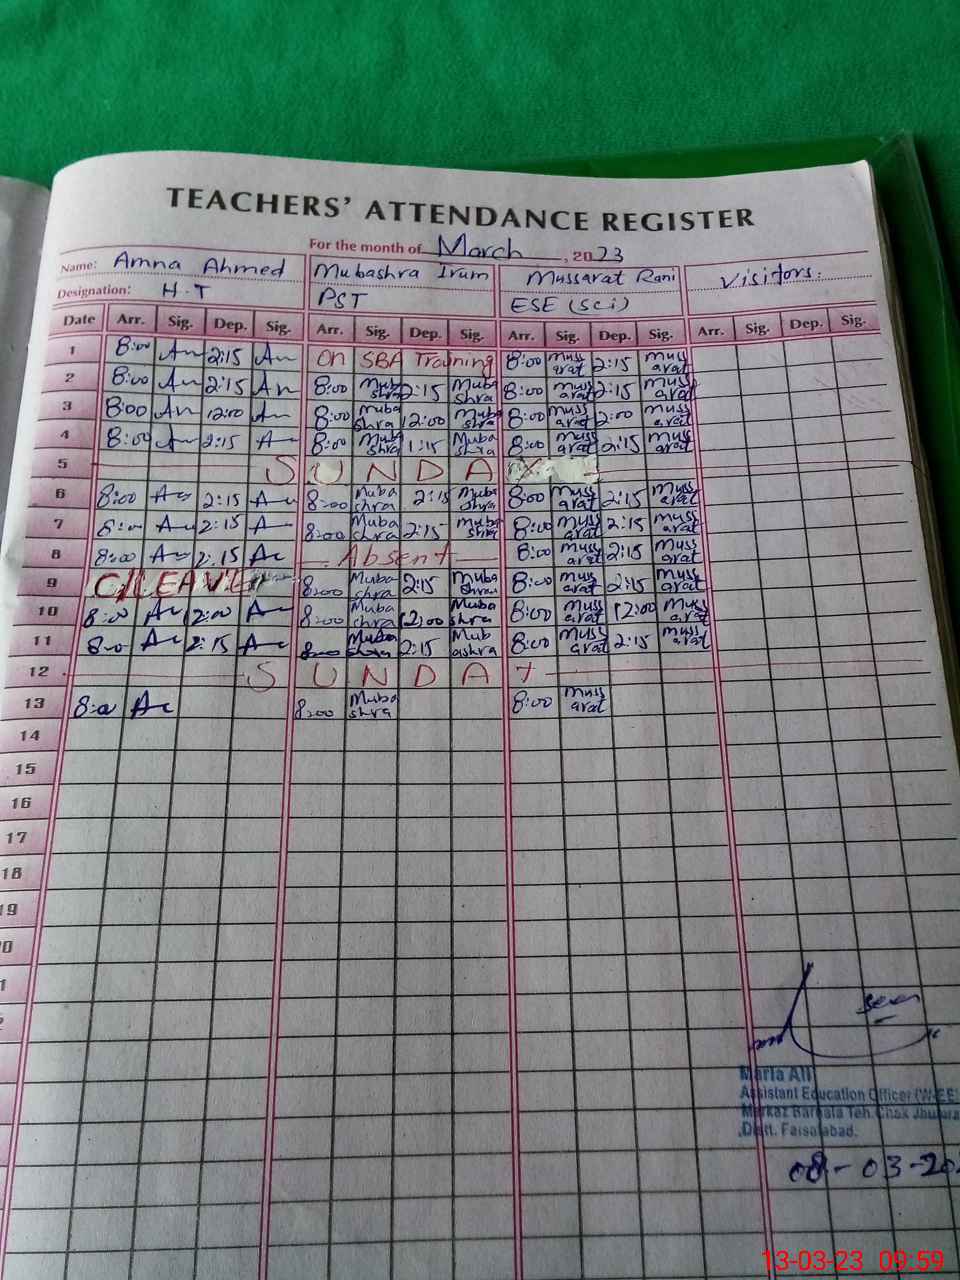 TEACHERS' ATTENDANCE REGISTER
For the month of March, 2023
Name: Amna Ahmed Mubashra Irum Mussarat Rani Visitors:
Designation: H.T PST ESE (Sci)
Date Arr. Sig. Dep. Sig. Arr. Sig. Dep. Sig. Arr. Sig. Dep. Sig. Arr. Sig. Dep. Sig.
1 8:00 An 2:15 An On SBA Training 8:00 Mussarat 2:15 Mussarat
2 8:00 An 2:15 An 8:00 Mubashra 2:15 Mubashra 8:00 Mussarat 2:15 Mussarat
3 8:00 An 12:00 An 8:00 Mubashra 12:00 Mubashra 8:00 Mussarat 2:00 Mussarat
4 8:00 An 2:15 An 8:00 Mubashra 1:15 Mubashra 8:00 Mussarat 2:15 Mussarat
5 S U N D A
6 8:00 An 2:15 An 8:00 Mubashra 2:15 Mubashra 8:00 Mussarat 2:15 Mussarat
7 8:00 An 2:15 An 8:00 Mubashra 2:15 Mubashra 8:00 Mussarat 2:15 Mussarat
8 8:00 An 2:15 An Absent 8:00 Mussarat 2:15 Mussarat
9 C/LEAVE 8:00 Mubashra 2:15 Mubashra 8:00 Mussarat 2:15 Mussarat
10 8:00 An 12:00 An 8:00 Mubashra 12:00 Mubashra 8:00 Mussarat 12:00 Mussarat
11 8:00 An 2:15 An 8:00 Mubashra 2:15 Mubashra 8:00 Mussarat 2:15 Mussarat
12 S U N D A Y
13 8:00 An 8:00 Mubashra 8:00 Mussarat
14
15
16
17
18
19
20
Seen
Maria Ali
Assistant Education Officer (W-EE)
Markaz Barnala Teh. Chak Jhumra
Distt. Faisalabad.
08-03-20
13-03-23 09:59